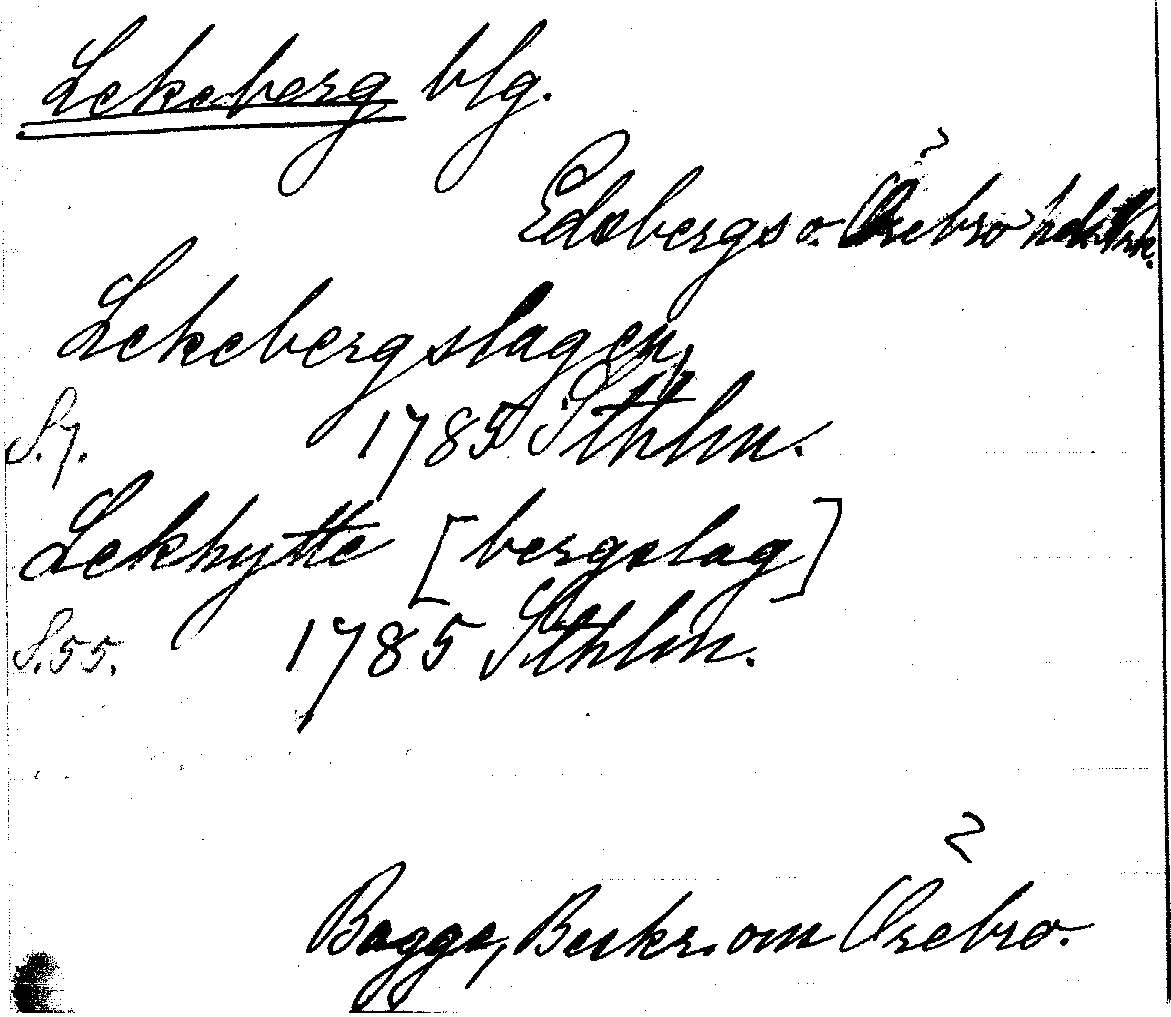 Lekeberg blg.
Edsbergs o. Örebro hdr
Lekebergslagen,
S.7. 1785 Sthlm.
Lekhytte [bergslag]
S.55. 1785 Sthlm.
Bagge, Beskr. om Örebro.